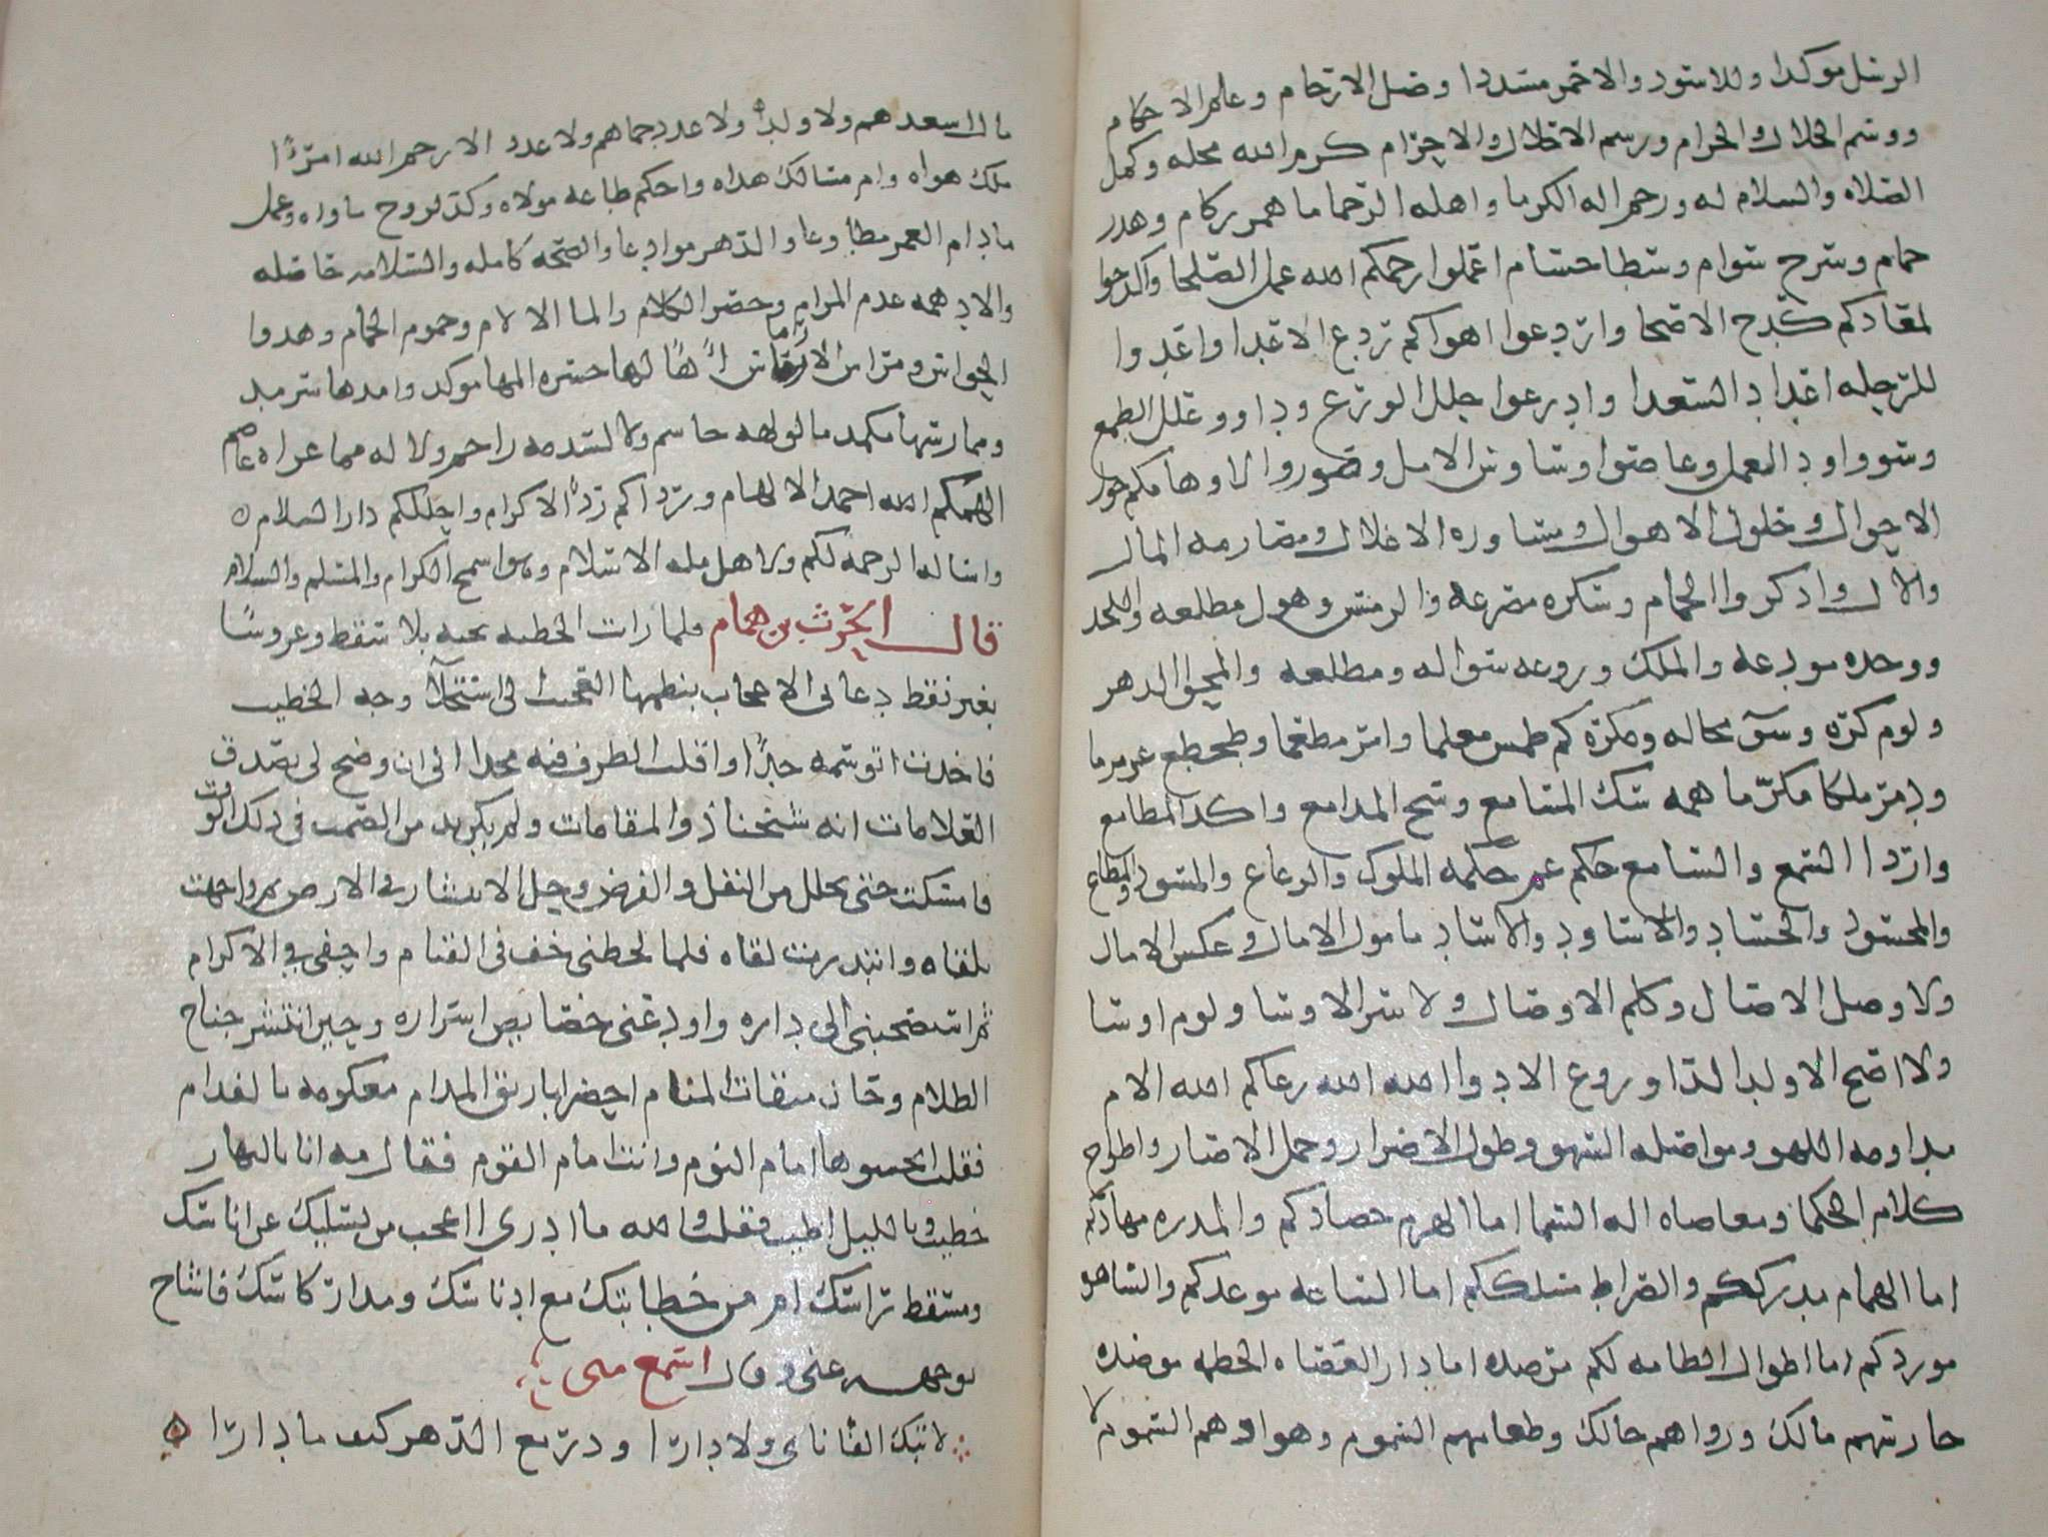 الرسل موكدا وللاسود والاحمر مسددا وصل الارحام وعلم الاحكام
ووسم الحلال والحرام ورسم الاحلال والاحرام كرم الله محله وكمل
الصلاه والسلام له ورحم اله الكرما واهله الرحما ما همر ركام وهدر
حمام وسرح سوام وسطا حسام اعملوا رحمكم الله عمل الصلحا واكدحوا
لمعادكم كدح الاصحا واردعوا اهواكم ردع الاعدا واعدوا
للرحله اعداد السعدا وادرعوا حلل الورع وداووا علل الطمع
وسووا اود العمل وعاصوا وساوس الامل وصوروا لاوهامكم حوول
الاحوال وحلول الاهوال ومساوره الاعلال ومصارمه المال
والال وادكروا الحمام وسكره مصرعه والرمس وهول مطلعه واللحد
ووحده مودعه والملك وروعه سواله ومطلعه والمحوا الدهر
ولوم كره وسو محاله ومكره كم طمس معلما وامر مطعما وطحطح عرمرما
ودمر ملكا مكرما همه سك المسامع وسح المدامع واكدا المطامع
واردا المسمع والسامع عم حكمه الملوك والرعاع والمسود والمطاع
والمحسود والحساد والاساود والاساد ما مول الا مال وعكس الامال
ولا وصل الا صال وكلم الاوصال ولا سر الا وسا ولوم اوسا
ولا اصح الا ولد الدا وروع الاودا الله الله رعاكم الله الام
مداومه اللهو ومواصله السهو وطول الاصرار وحمل الاصار واطراح
كلام الحكما ومعاصاه اله السما اما الهرم حصادكم والمدره مهادكم
اما الحمام مدرككم والصراط مسلككم اما الساعه موعدكم والساهره
موردكم اما اهوال الطامه لكم مرصده اما دار العصاه الحطمه موصده
حارسهم مالك ورواهم حالك وطعامهم السموم وهواهم السموم لا
مال اسعدهم ولا ولد ولا عدد حماهم ولا عدد الا رحم الله امرءا
ملك هواه وام مسالك هداه واحكم طاعه مولاه وكدح لروح ماواه وعمل
مادام العمر مطاوعا والدهر موادعا والصحه كامله والسلامه حاصله
والا دهمه عدم المرام وحصر الكلام والمام الالام وحموم الحمام وهدو
الحواس ومراس الارماس اها لها حسره المها موكد وامدها سرمد
وممارسها مكمد ما لولهه حاسم ولا لسدمه راحم ولا له مما عراه عاصم
الهمكم الله احمد الالهام ورداكم ردا الاكرام واحلكم دار السلام ه
واساله الرحمه لكم ولاهل مله الاسلام وهو اسمح الكرام والمسلم والسلام
قال الحرث بن همام فلما رات الخطبه نخبه بلا سقط وعروسا
بغير نقط دعاني الاعجاب بنظمها العجيب الى استجلا وجه الخطيب
فاخذت اتوسمه جدا واقلب الطرف فيه مجدا الى ان وضح لي بصدق
العلامات انه شيخنا ذو المقامات ولم يكن بد من الصمت في ذلك الوقت
فامسكت حتى تحلل من النفل والفرض وحل الانتشار في الارض ثم واجهت
تلقاه وابتدرت لقاه فلما لحظني خف في القيام واحفى في الاكرام
ثم استصحبني الى داره واودعني خصايص اسراره وحين انتشر جناح
الظلام وحان ميقات المنام احضر اباريق المدام معكومه بالفدام
فقلت اتحسوها امام النوم وانت امام القوم فقال مه انا بالنهار
خطيب وبالليل اطيب فقلت والله ما ادري ااعجب من تسليك عن اناسك
ومسقط راسك ام من خطابتك مع ادناسك ومدار كاسك فاشاح
بوجهه عني وقال استمع مني
لا تبك الفا ناى ولا دارا ودر مع الدهر كيف ما دارا